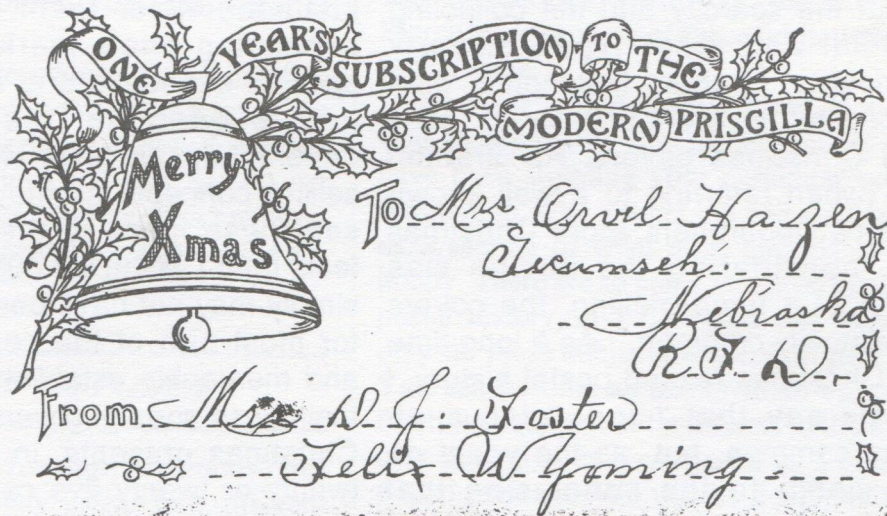 ONE YEAR'S SUBSCRIPTION TO THE
MODERN PRISCILLA
Merry
Xmas
To Mrs Orvel Hazen
Tecumseh.
Nebraska
R. F. D.
From Mrs D. J. Foster
Felix Wyoming.